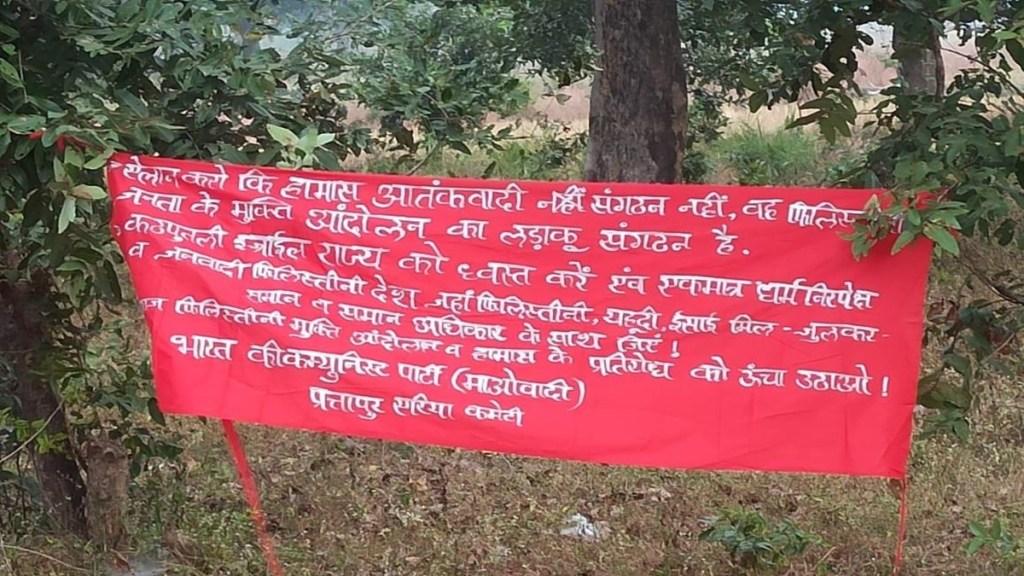 ऐलान करो कि हामास आतंकवादी नहीं संगठन नहीं, वह
जनता के मुक्ति आंदोलन का लड़ाकू संगठन है.
कठपुतली इज्राईल राज्य को ध्वस्त करें एवं एकमात्र धर्म निरपेक्ष
व जनवादी फिलिस्तीनी देश जहां फिलिस्तीनी, यहूदी, ईसाई मिल-जुलकर-
समान व समान अधिकार के साथ जिएं!
फिलिस्तीनी मुक्ति आंदोलन व हामास के प्रतिरोध को ऊंचा उठाओ!
भारत की कम्युनिस्ट पार्टी (माओवादी)
प्रतापुर एरिया कमेटी